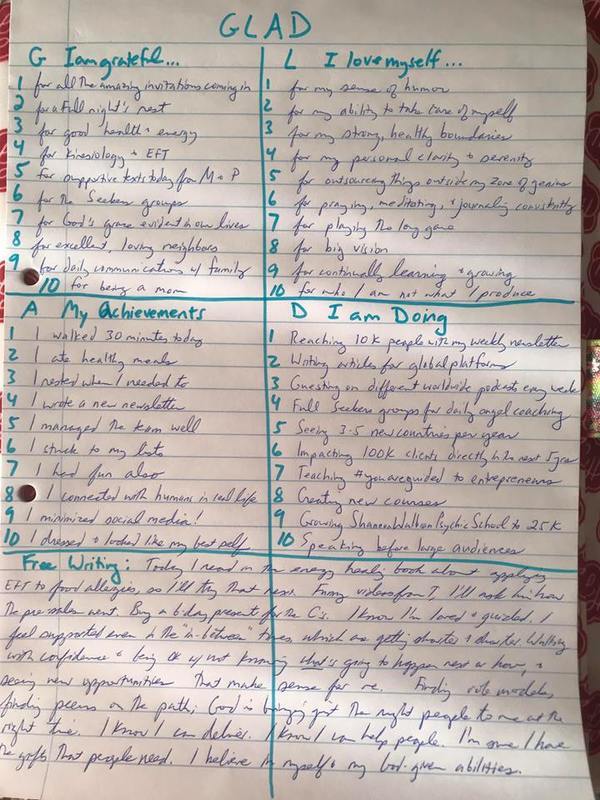 GLAD
G I am grateful...
1 for all the amazing invitations coming in
2 for a full night's rest
3 for good health + energy
4 for kinesiology + EFT
5 for supportive texts today from M + P
6 for the Seekers groups
7 for God's grace evident in our lives
8 for excellent, loving neighbors
9 for daily communications w/ family
10 for being a mom
L I love myself...
1 for my sense of humor
2 for my ability to take care of myself
3 for my strong, healthy boundaries
4 for my personal clarity + serenity
5 for outsourcing things outside my zone of genius
6 for praying, meditating, + journaling consistently
7 for playing the long game
8 for big vision
9 for continually learning + growing
10 for who I am not what I produce
A My Achievements
1 I walked 30 minutes today
2 I ate healthy meals
3 I rested when I needed to
4 I wrote a new newsletter
5 I managed the team well
6 I stuck to my lists
7 I had fun also
8 I connected with humans in real life
9 I minimized social media!
10 I dressed + looked like my best self
D I am Doing
1 Reaching 10K people with my weekly newsletter
2 Writing articles for global platforms
3 Guesting on different worldwide podcasts every week
4 Full Seekers groups for daily angel coaching
5 Seeing 3-5 new countries per year
6 Impacting 100K clients directly in the next 5 years
7 Teaching #youareguided to entrepreneurs
8 Creating new courses
9 Growing Shannen Walken Psychic School to 25K
10 Speaking before large audiences
Free Writing: Today I read in the energy healing book about applying
EFT to food allergies, so I'll try that next. Funny videos from T, I'll ask him how
the pre sales went. Buy a b'day present for the C's. I know I'm loved + guided. I
feel supported even in the "in-between" times, which are getting shorter + shorter. Walking
with confidence + being ok w/ not knowing what's going to happen next or how, +
seeing new opportunities that make sense for me. Finding role models,
finding peers on the path, God is bringing just the right people to me at the
right time. I know I can deliver. I know I can help people. I'm sure I have
the gifts that people need. I believe in myself + my God-given abilities.